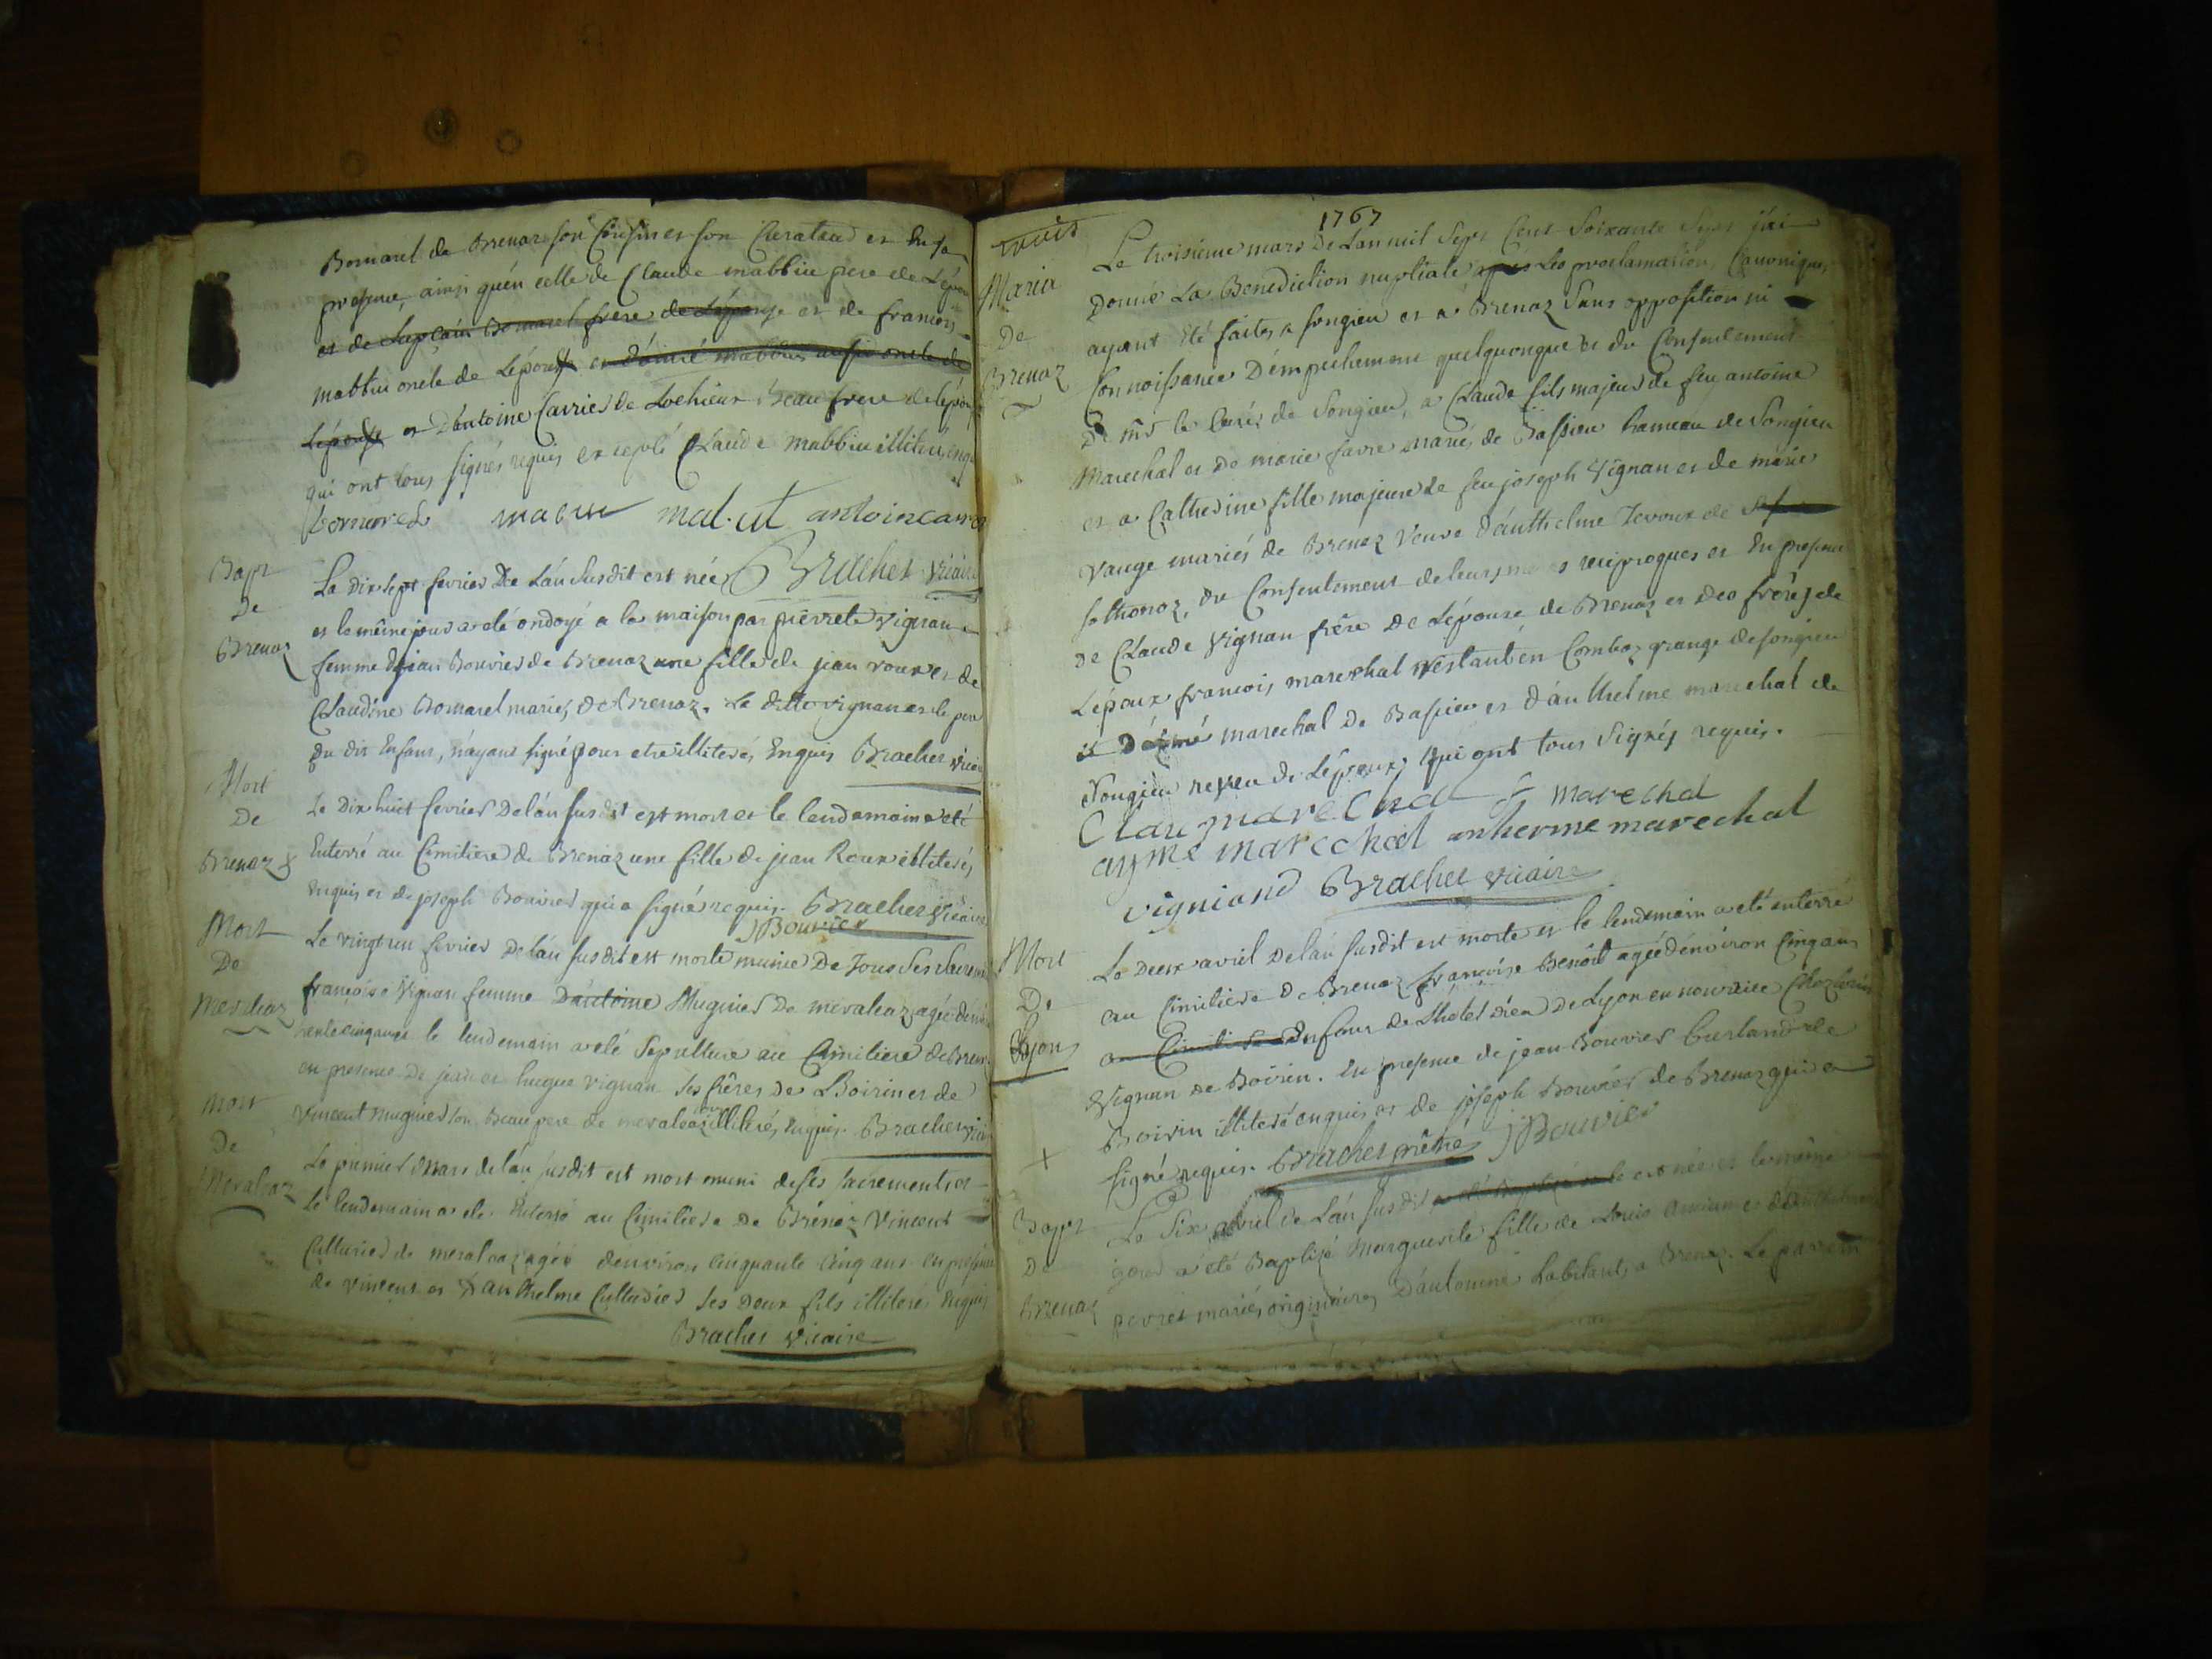 Bomarel de Brenaz son Cousin et son Curateur et en sa
presence, ainsi qu'en celle de Claude mabbiu pere de L'épou
et de françois
mabbiu oncle de L'épou
et D'Antoine Carrier de Lochieux Beaufrere de l'épou
qui ont tous signés requis excepté Claude mabbiu illiteré enq
antoine carrie
Brachet vicaire
Bapt
De
Brenaz
Le dix sept fevrier De L'an susdit est née
et le même jour a été ondoyé a la maison par pierrete vignan
femme de jean Bouvier de Brenaz une fille de jean roux et de
Claudine Bomarel mariés de Brenaz. La ditte vignan et le pere
du dit Enfans, n'ayant signé pour etre illiterés Enquis Brachet vicaire
Mort
De
Brenaz
Le Dix huit fevrier De l'an susdit est mort et le lendemain a eté
Enterré au Cimitiere de Brenaz une fille de jean Roux illiteré,
enquis et de joseph Bouvier qui a signé requis. Brachet vicaire
JBouvier
Mort
De
Meraleaz
Le vingt un fevrier De l'an susdit est morte munie De Tous ses Sacremens
françoise Vignan femme D'antoine Mugnier De meraleaz agée d'environ
trente cinq ans et le lendemain a eté Sepulture au Cimitiere de Brenaz
en presence De jean et hugue vignan ses frêres de Boirin et de
Vincent mugnier son Beau pere de meraleaz illiterés, enquis. Brachet vicaire
Mort
De
Meraleaz
Le premier Mars de l'an susdit est mort muni de ses sacrements et
le lendemain a eté Enterré au Cimitiere De Brénaz Vincent
Cullerier de meraleaz agée d'environ cinquante cinq ans en presence
de Vincent et D'anthelme Cullerier ses Deux fils illiterés Enquis
Brachet vicaire
1767
Maria
De
Brenaz
Le troisieme mars De L'an mil Sept Cent Soixante Sept j'ai
Donné La Benediction nuptiale après Les proclamations Canoniques
ayant Eté faites a songieu et a Brenaz Sans opposition ni
Connoissance D'émpechement quelquonque et du Consentement
De mr le Curé de Songieu, a Claude fils majeur de feu antoine
Marechal et De marie favre mariés de Bassieu hameau de Songieu
et a Catherine fille majeure de feu joseph Vignan et de marie
Vauge mariés de Brenaz Veuve d'anthelme Jevoux de
sothonoz, du Consentement de leurs meres reciproques et En presence
De Claude Vignan frêre De L'épouse de Brenaz et Des frêres de
L'époux françois marechal restant en Combaz grange de songieu
et D'aimé marechal De Bassieu et d'anthelme marechal de
Songieu neveu de L'époux, qui ont tous Signés requis.
Clau marechal f marechal
ayme marechal antherme marechal
vigniand Brachet vicaire
Mort
De
Lyon
Le Deux avril De l'an susdit est morte et le lendemain a eté enterré
au Cimitiere De Brenaz françoise Benoit agée d'environ Cinq ans
Enfans de L'hotel dieu De Lyon en nourrice Chez
Vignan De Boirin. En presence de jean Bouvier Curland de
Boirin illiteré enquis et de joseph Bouvier de Brenaz qui a
signé requis. Brachet prêtre JBouvier
Bapt
De
Brenaz
Le Six avril de L'an susdit est née et le même
jour a été Baptisé Marguerite fille de Louis
mariés originaires habitants a Brenaz. Le parrein